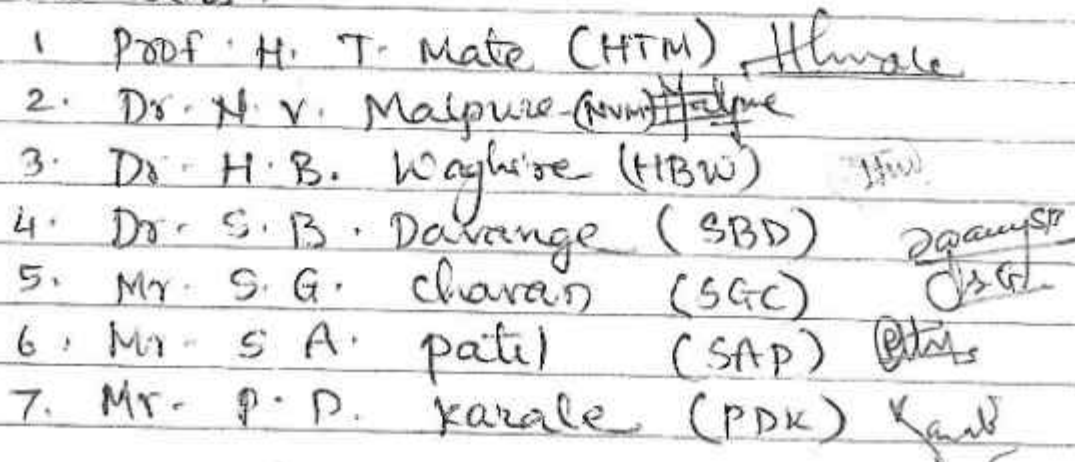 1 Prof. H. T. Mate (HTM)
2. Dr. N. V. Malpure (NVM)
3. Dr. H. B. Waghire (HBW)
4. Dr. S. B. Davange (SBD)
5. Mr. S. G. Chavan (SGC)
6. Mr. S A. patil (SAP)
7. Mr. P. D. Karale (PDK)